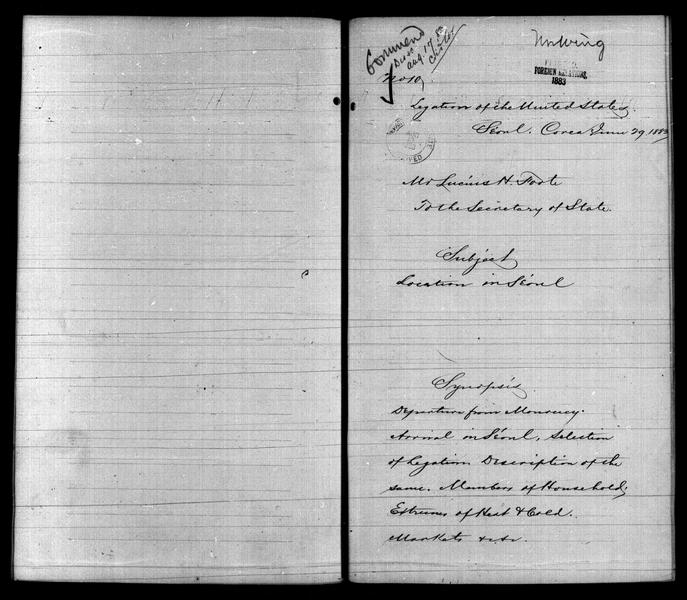 Commend
Aug. 17. 83
No 10,
FOREIGN RELATIONS,
1883
Legation of the United States,
Séoul. Corea June 29, 1883
Mr Lucius H. Foote
To the Secretary of State.
Subject
Location in Séoul
Synopsis
Departure from Monocacy.
Arrival in Séoul, Selection
of Legation. Description of the
same. Members of Household;
Extremes of Heat & Cold.
Markets &c &c